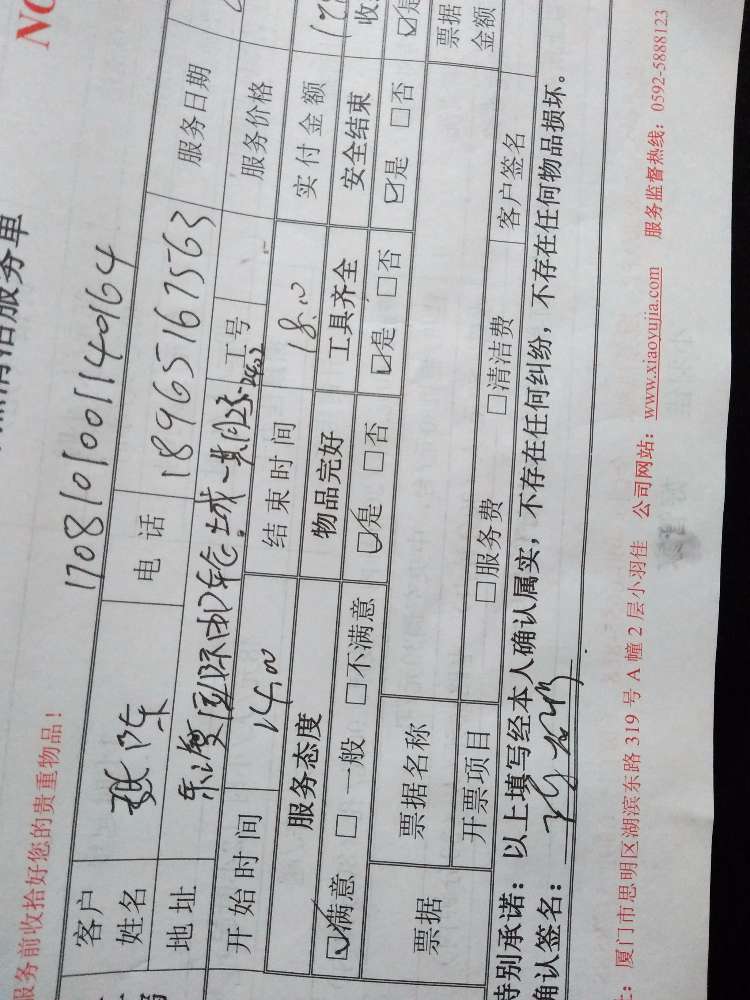 NO
清洁服务单
服务前收拾好您的贵重物品！
1708101001140164
客户姓名 张陈 电话 18965167563 服务日期
地址 东渡国际邮轮城一期 工号 服务价格
开始时间 14.00 结束时间 18.00 实付金额
服务态度 物品完好 工具齐全 安全结束
☑满意 □一般 □不满意 ☑是 □否 ☑是 □否 ☑是 □否 ☑是
票据 票据名称 票据金额
开票项目 □服务费 □清洁费 客户签名
特别承诺：以上填写经本人确认属实，不存在任何纠纷，不存在任何物品损坏。
确认签名：
厦门市思明区湖滨东路 319 号 A 幢 2 层小羽佳 公司网站：www.xiaoyujia.com 服务监督热线：0592-5888123